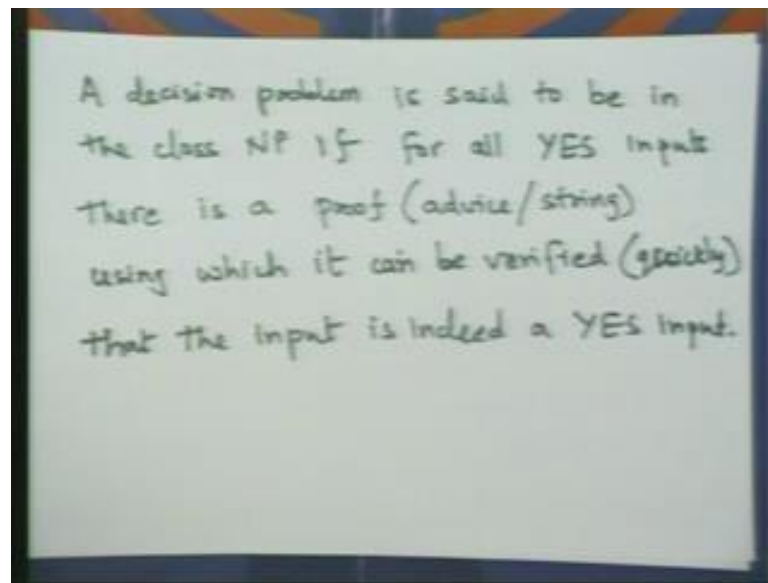 A decision problem is said to be in
the class NP if for all YES inputs
there is a proof (advice/string)
using which it can be verified (quickly)
that the input is indeed a YES input.